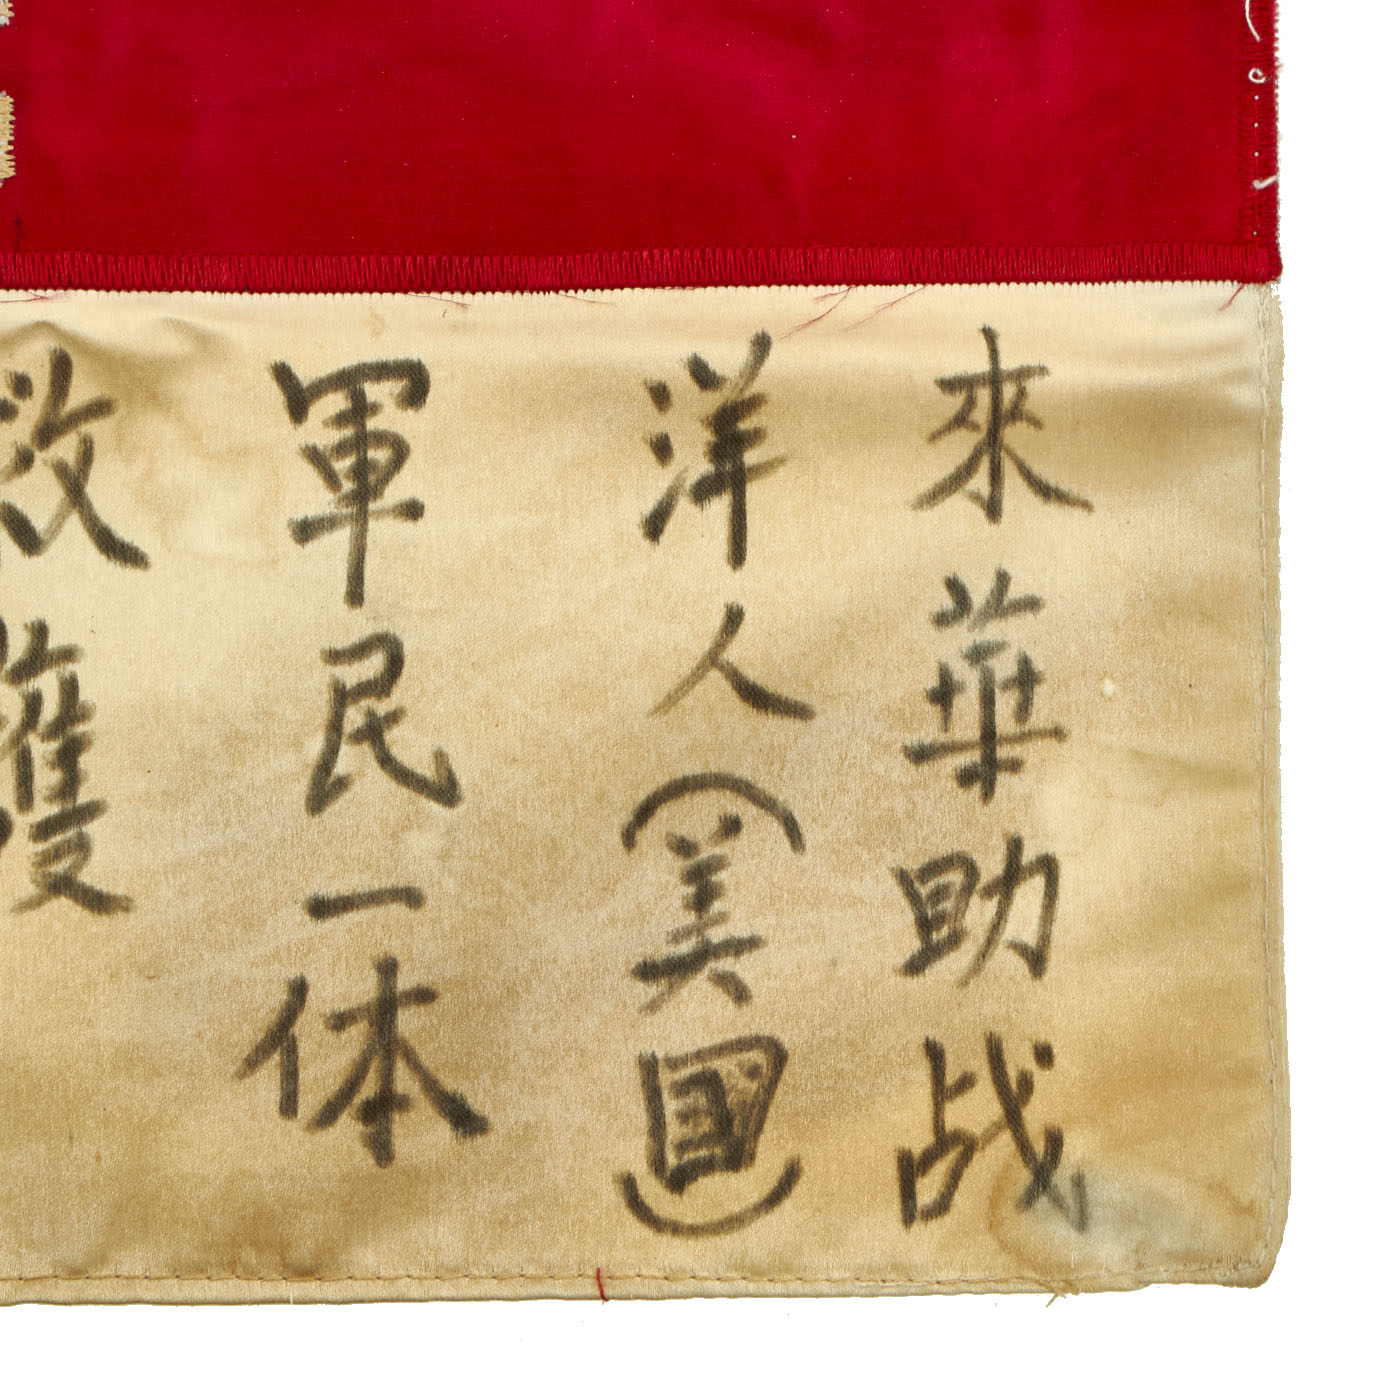 來華助战
洋人（美國）
軍民一体
救護